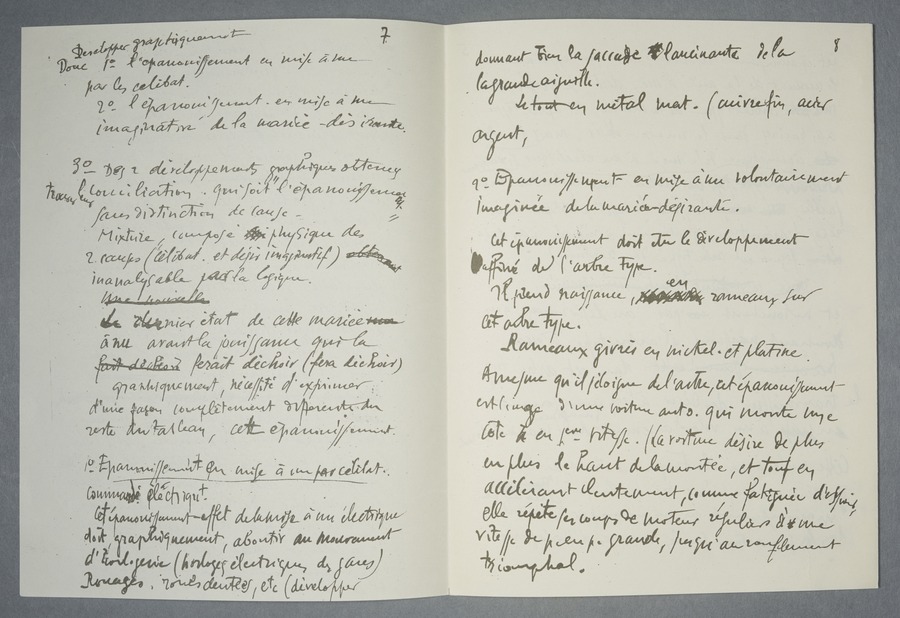 7
Developper graphiquement
Donc 1º l'épanouissement en mise à nu
par les célibat.
2º l'épanouissement en mise à nu
imaginative de la mariée-désirante.
3º Des 2 développements graphiques obtenus
trouver leur conciliation. qui soit "l'épanouissement"
sans distinction de cause.
Mixture, compose physique des
2 causes (célibat. et désir imaginatif) obtenant
inanalysable par la logique.
Une nouvelle
Le dernier état de cette mariée nue
à nu avant la jouissance qui la
fait déchoir ferait déchoir (fera déchoir)
graphiquement, nécessité d'exprimer
d'une façon complètement différente du
reste du tableau, cette épanouissement.
1º Epanouissement en mise à nu par célibat.
commande électriqt.
Cet épanouissement-effet de la mise à nu électrique
doit graphiquement, aboutir au mouvement
d'horlogerie (horloges électriques des gares)
Rouages. roues dentées, etc (développer
8
donnant bien la saccade lancinante de la
la grande aiguille.
Le tout en métal mat. (cuivre fin, acier
argent,
2º Epanouissement en mise à nu volontairement
imaginée de la mariée-désirante.
Cet épanouissement doit être le développement
affiné de l'arbre type.
Il prend naissance, en rameaux sur
cet arbre type.
Rameaux givrés en nickel et platine.
A mesure qu'il s'éloigne de l'arbre, cet épanouissement
est l'image d'une voiture auto. qui monte une
côte en 1ère vitesse. (La voiture désire de plus
en plus le haut de la montée, et tout en
accélérant lentement, comme fatiguée d'espoir,
elle répète ses coups de moteur réguliers à une
vitesse de p. en p. grande, jusqu'au ronflement
triomphal.